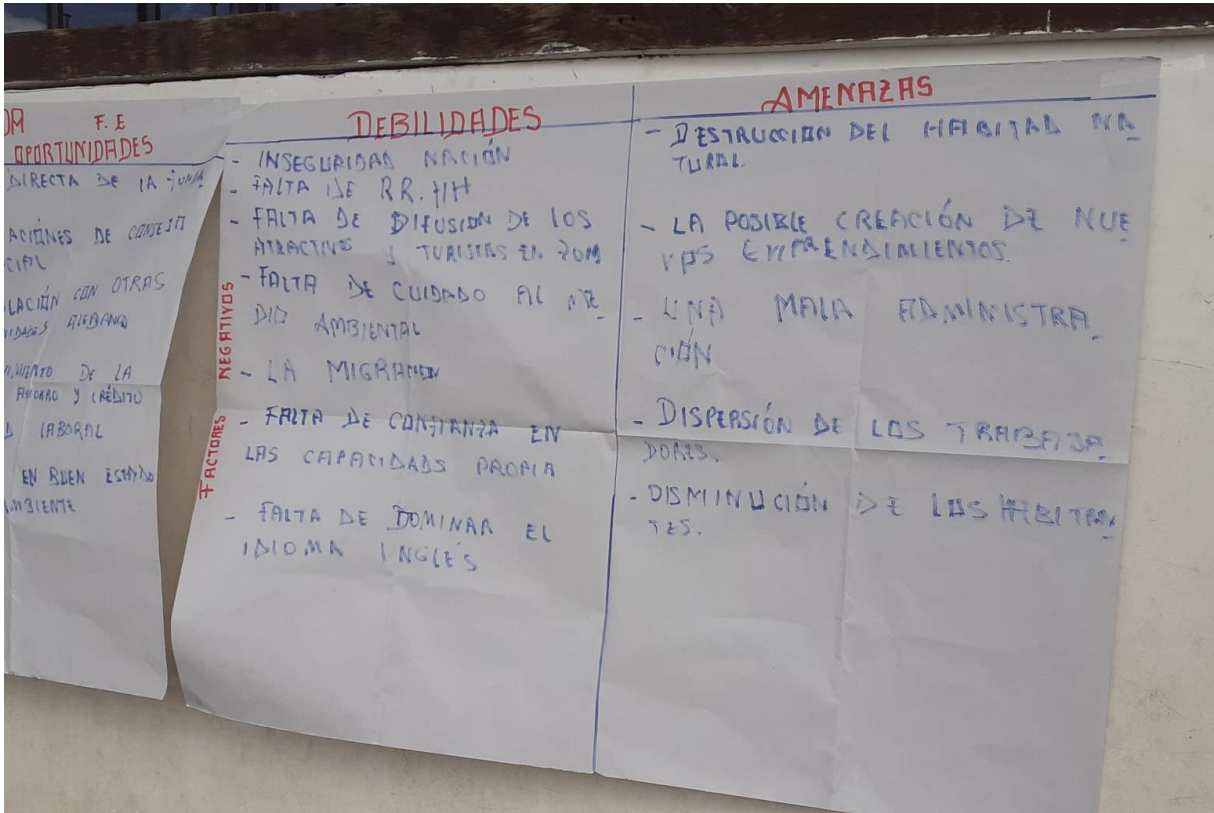 F.E
OPORTUNIDADES
DIRECTA DE LA JUNTA
ACIONES DE CONSEJO
CIAL
LACIÓN CON OTRAS
DE LA
AHORRO Y CRÉDITO
LABORAL
EN BUEN ESTADO
AMBIENTE
FACTORES NEGATIVOS
DEBILIDADES
- INSEGURIDAD NACIÓN
- FALTA DE RR.HH
- FALTA DE DIFUSION DE LOS
ATRACTIVOS Y TURISTAS EN ZOM
- FALTA DE CUIDADO AL ME_
DIO AMBIENTAL
- LA MIGRACION
- FALTA DE CONFIANZA EN
LAS CAPACIDADS PROPIA
- FALTA DE DOMINAR EL
IDIOMA INGLÉS
AMENAZAS
- DESTRUCCION DEL HABITAD NA
TURAL.
- LA POSIBLE CREACIÓN DE NUE
VOS EMPRENDIMIENTOS.
- UNA MALA ADMINISTRA_
CIÓN
- DISPERSIÓN DE LOS TRABAJA_
DORES.
- DISMINUCIÓN DE LOS HABITAN_
TES.